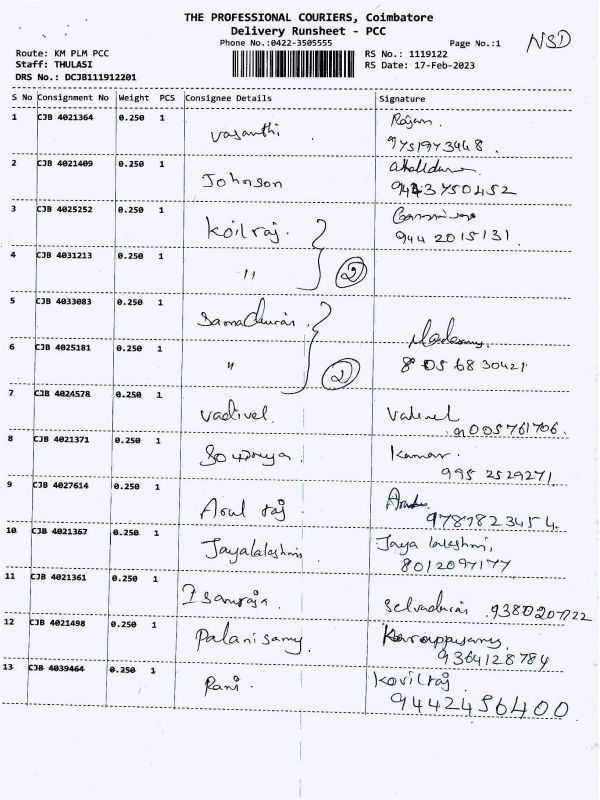 THE PROFESSIONAL COURIERS, Coimbatore
Delivery Runsheet - PCC
Phone No.:0422-3505555
Page No.:1
NSD
Route: KM PLM PCC
RS No.: 1119122
Staff: THULASI
RS Date: 17-Feb-2023
DRS No.: DCJB111912201
S No Consignment No Weight PCS Consignee Details Signature
1 CJB 4021364 0.250 1 Vasanthi Rajan.
9751973448.
2 CJB 4021409 0.250 1 Johnson
9443750452
3 CJB 4025252 0.250 1 Koilraj.
944 2015131.
4 CJB 4031213 0.250 1 " 2
5 CJB 4033083 0.250 1 Samadurai
6 CJB 4025181 0.250 1 " 2
8056830421
7 CJB 4024578 0.250 1 Vadivel
9005761706.
8 CJB 4021371 0.250 1 Sowmya. Kumar.
995 2529271.
9 CJB 4027614 0.250 1 Arul raj
9787823454.
10 CJB 4021367 0.250 1 Jayalalashmi Jaya lalashmi,
8012097177
11 CJB 4021361 0.250 1 Selvadurai 9380207722
12 CJB 4021498 0.250 1 Palanisamy. Karuppusamy
9364128784
13 CJB 4039464 0.250 1 Rani. Kovilraj
9442456400